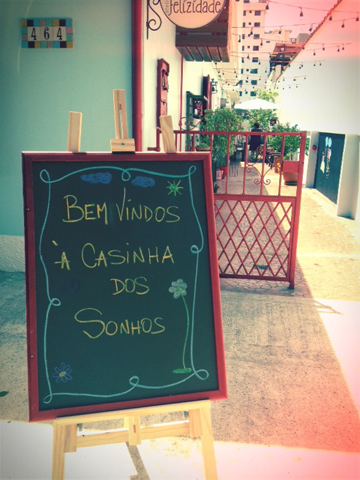 Felizidade
464
BEM VINDOS
À CASINHA
DOS
SONHOS